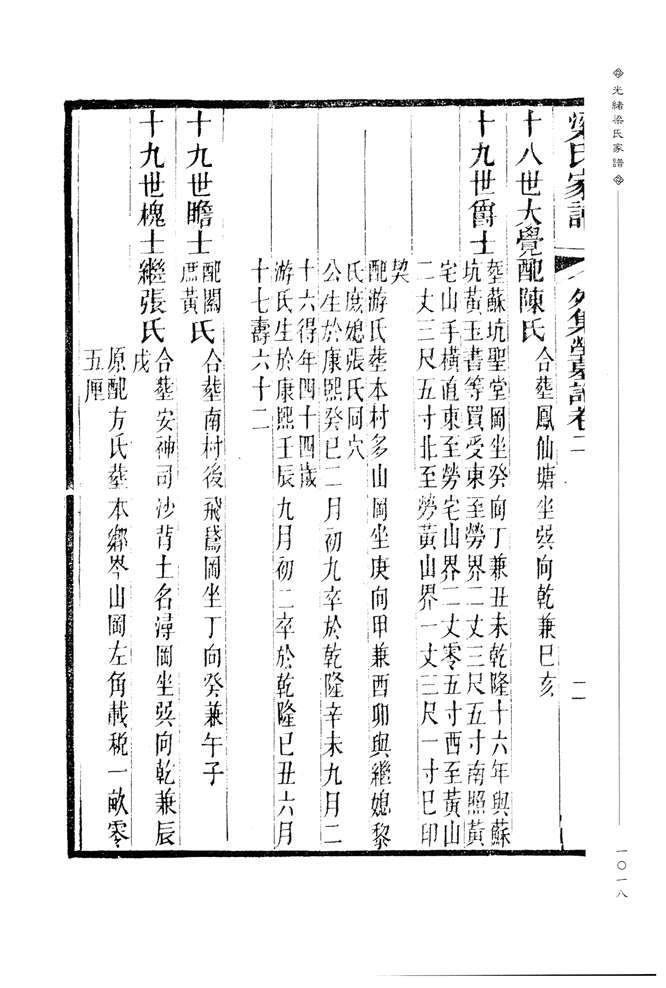 光緒梁氏家譜
一〇一八
梁氏家譜 外集塋墓譜卷二 二
十八世大覺配陳氏 合塟鳳仙塘坐巽向乾兼巳亥
十九世爵士 塟蘇坑聖堂岡坐癸向丁兼丑未乾隆十六年與蘇
坑黃玉書等買受東至勞界二丈三尺五寸南照黃
宅山手橫直東至勞宅山界二丈零五寸西至黃山
二丈三尺五寸北至勞黃山界一丈三尺一寸已印
契
配游氏塟本村多山岡坐庚向甲兼酉卯與繼媳黎
氏庶媳張氏同穴
公生於康熙癸巳二月初九卒於乾隆辛未九月二
十六得年四十四歲
游氏生於康熙壬辰九月初二卒於乾隆己丑六月
十七壽六十二
十九世瞻士 配闕氏 庶黃氏 合塟南村後飛鵞岡坐丁向癸兼午子
十九世槐士繼張氏 合塟安神司沙背土名潯岡坐巽向乾兼辰
戌
原配方氏塟本鄉岑山岡左角載稅一畝零
五厘